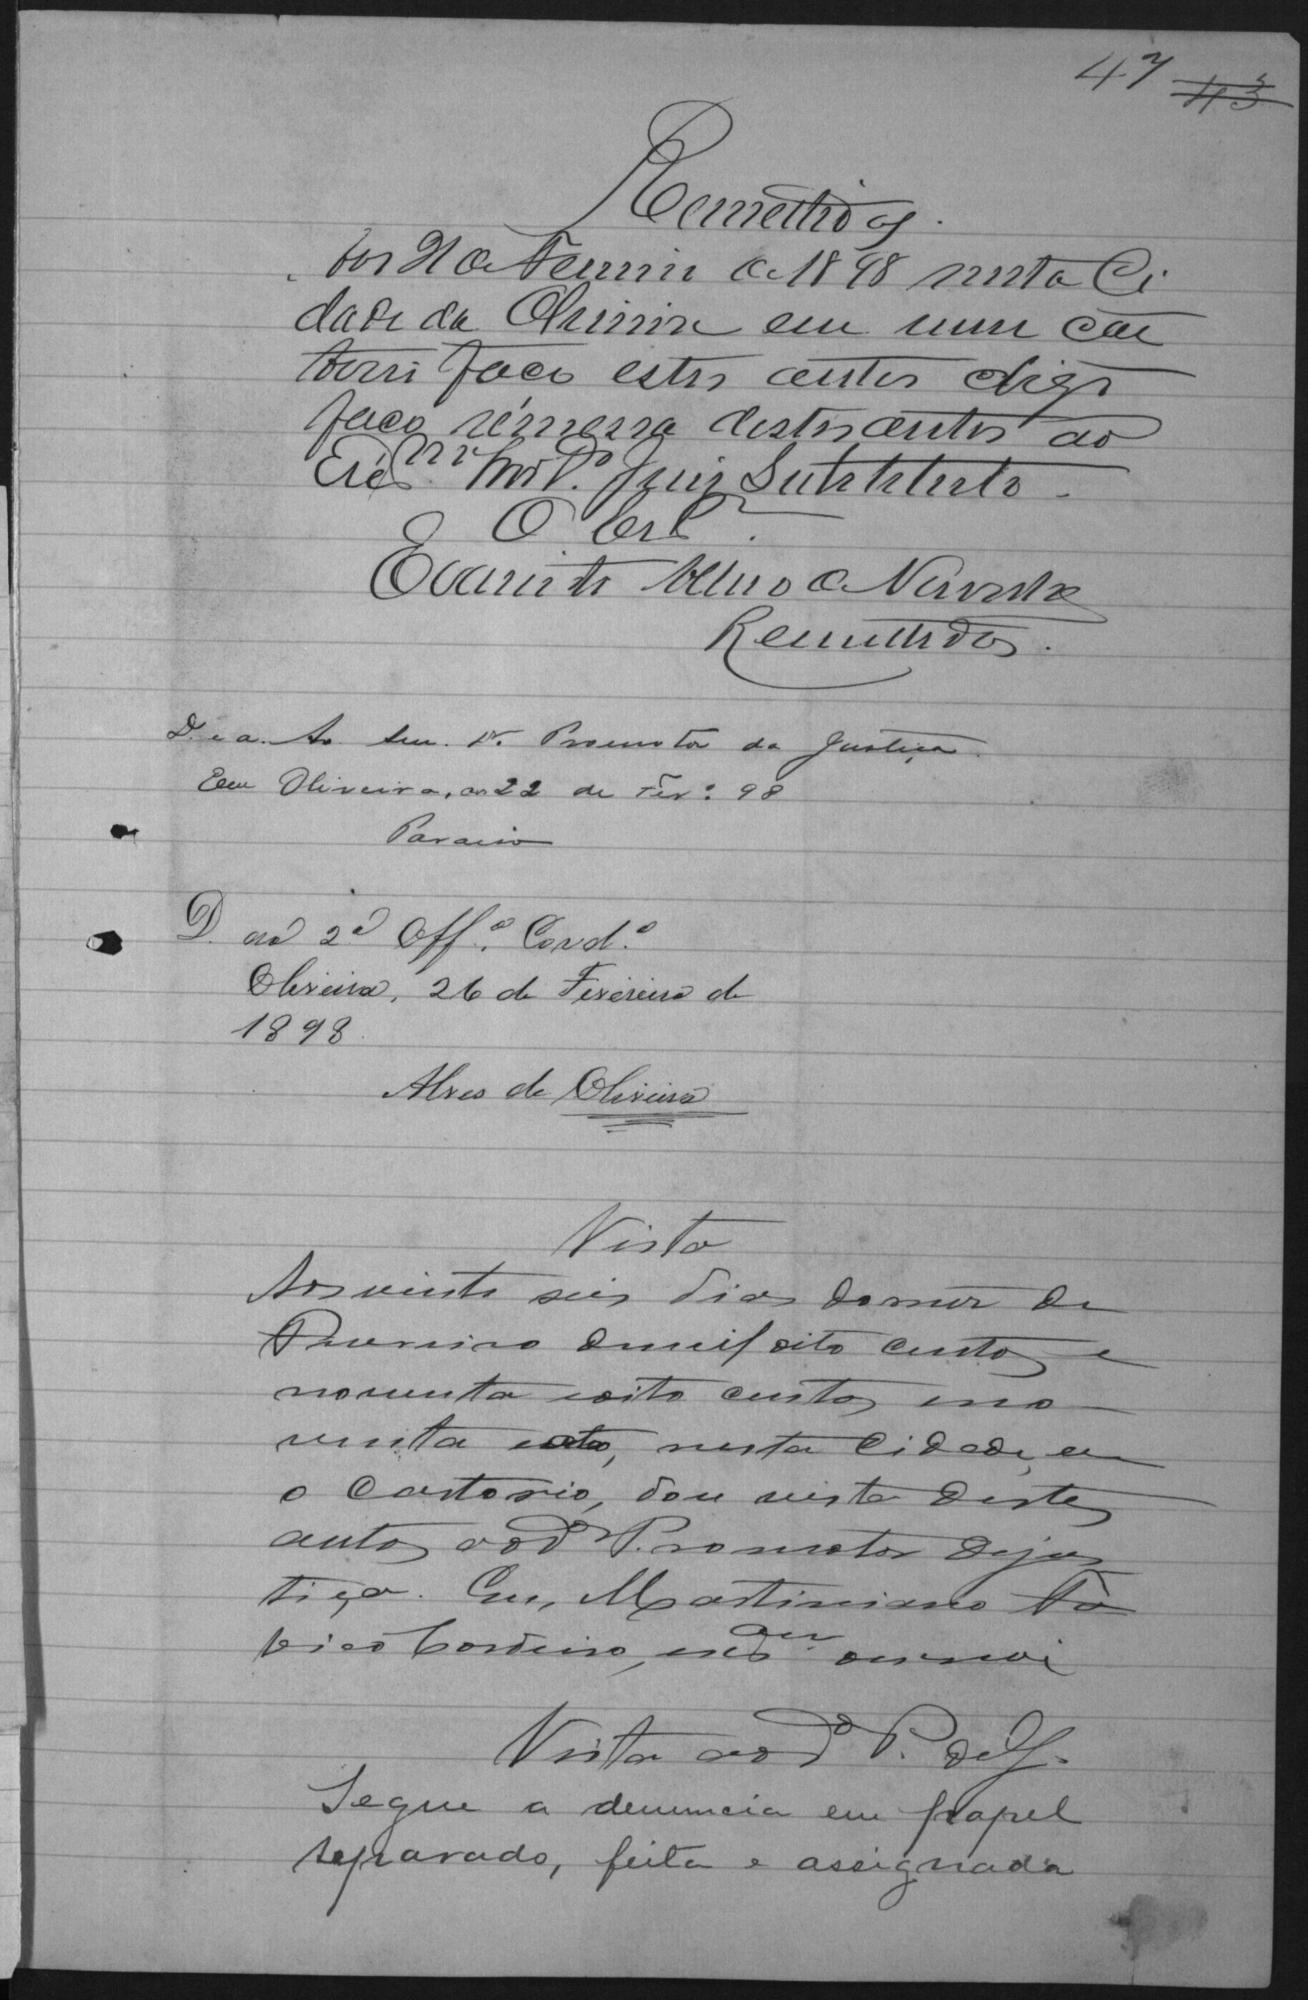 47 43
Remettidos.
Aos 21 de Fevereiro de 1898 nesta Ci
dade da Oliveira em meu car
torio faço estes autos digo
faço remessa destes autos ao
Juiz Substituto.
O
Evaristo de
Remettidos.
D. e a. Ao Sen. Dr. Promotor da Justiça.
Em Oliveira, aos 22 de Fevr.º 98
Paraiso
D. ao 2º Off.º Cord.º
Oliveira, 26 de Fevereiro de
1898.
Alves de Oliveira
Vista
Aos vinte seis dias do mez de
Fevereiro de mil oito centos e
noventa e oito centos e no
venta e oito, nesta Cidade, em
o Cartorio, dou vista destes
autos ao Dr Promotor de jus
tiça. Eu, Martiniano
Cordeiro, escrevi
Vista ao Dr P. de J.
Segue a denuncia em papel
separado, feita e assignada